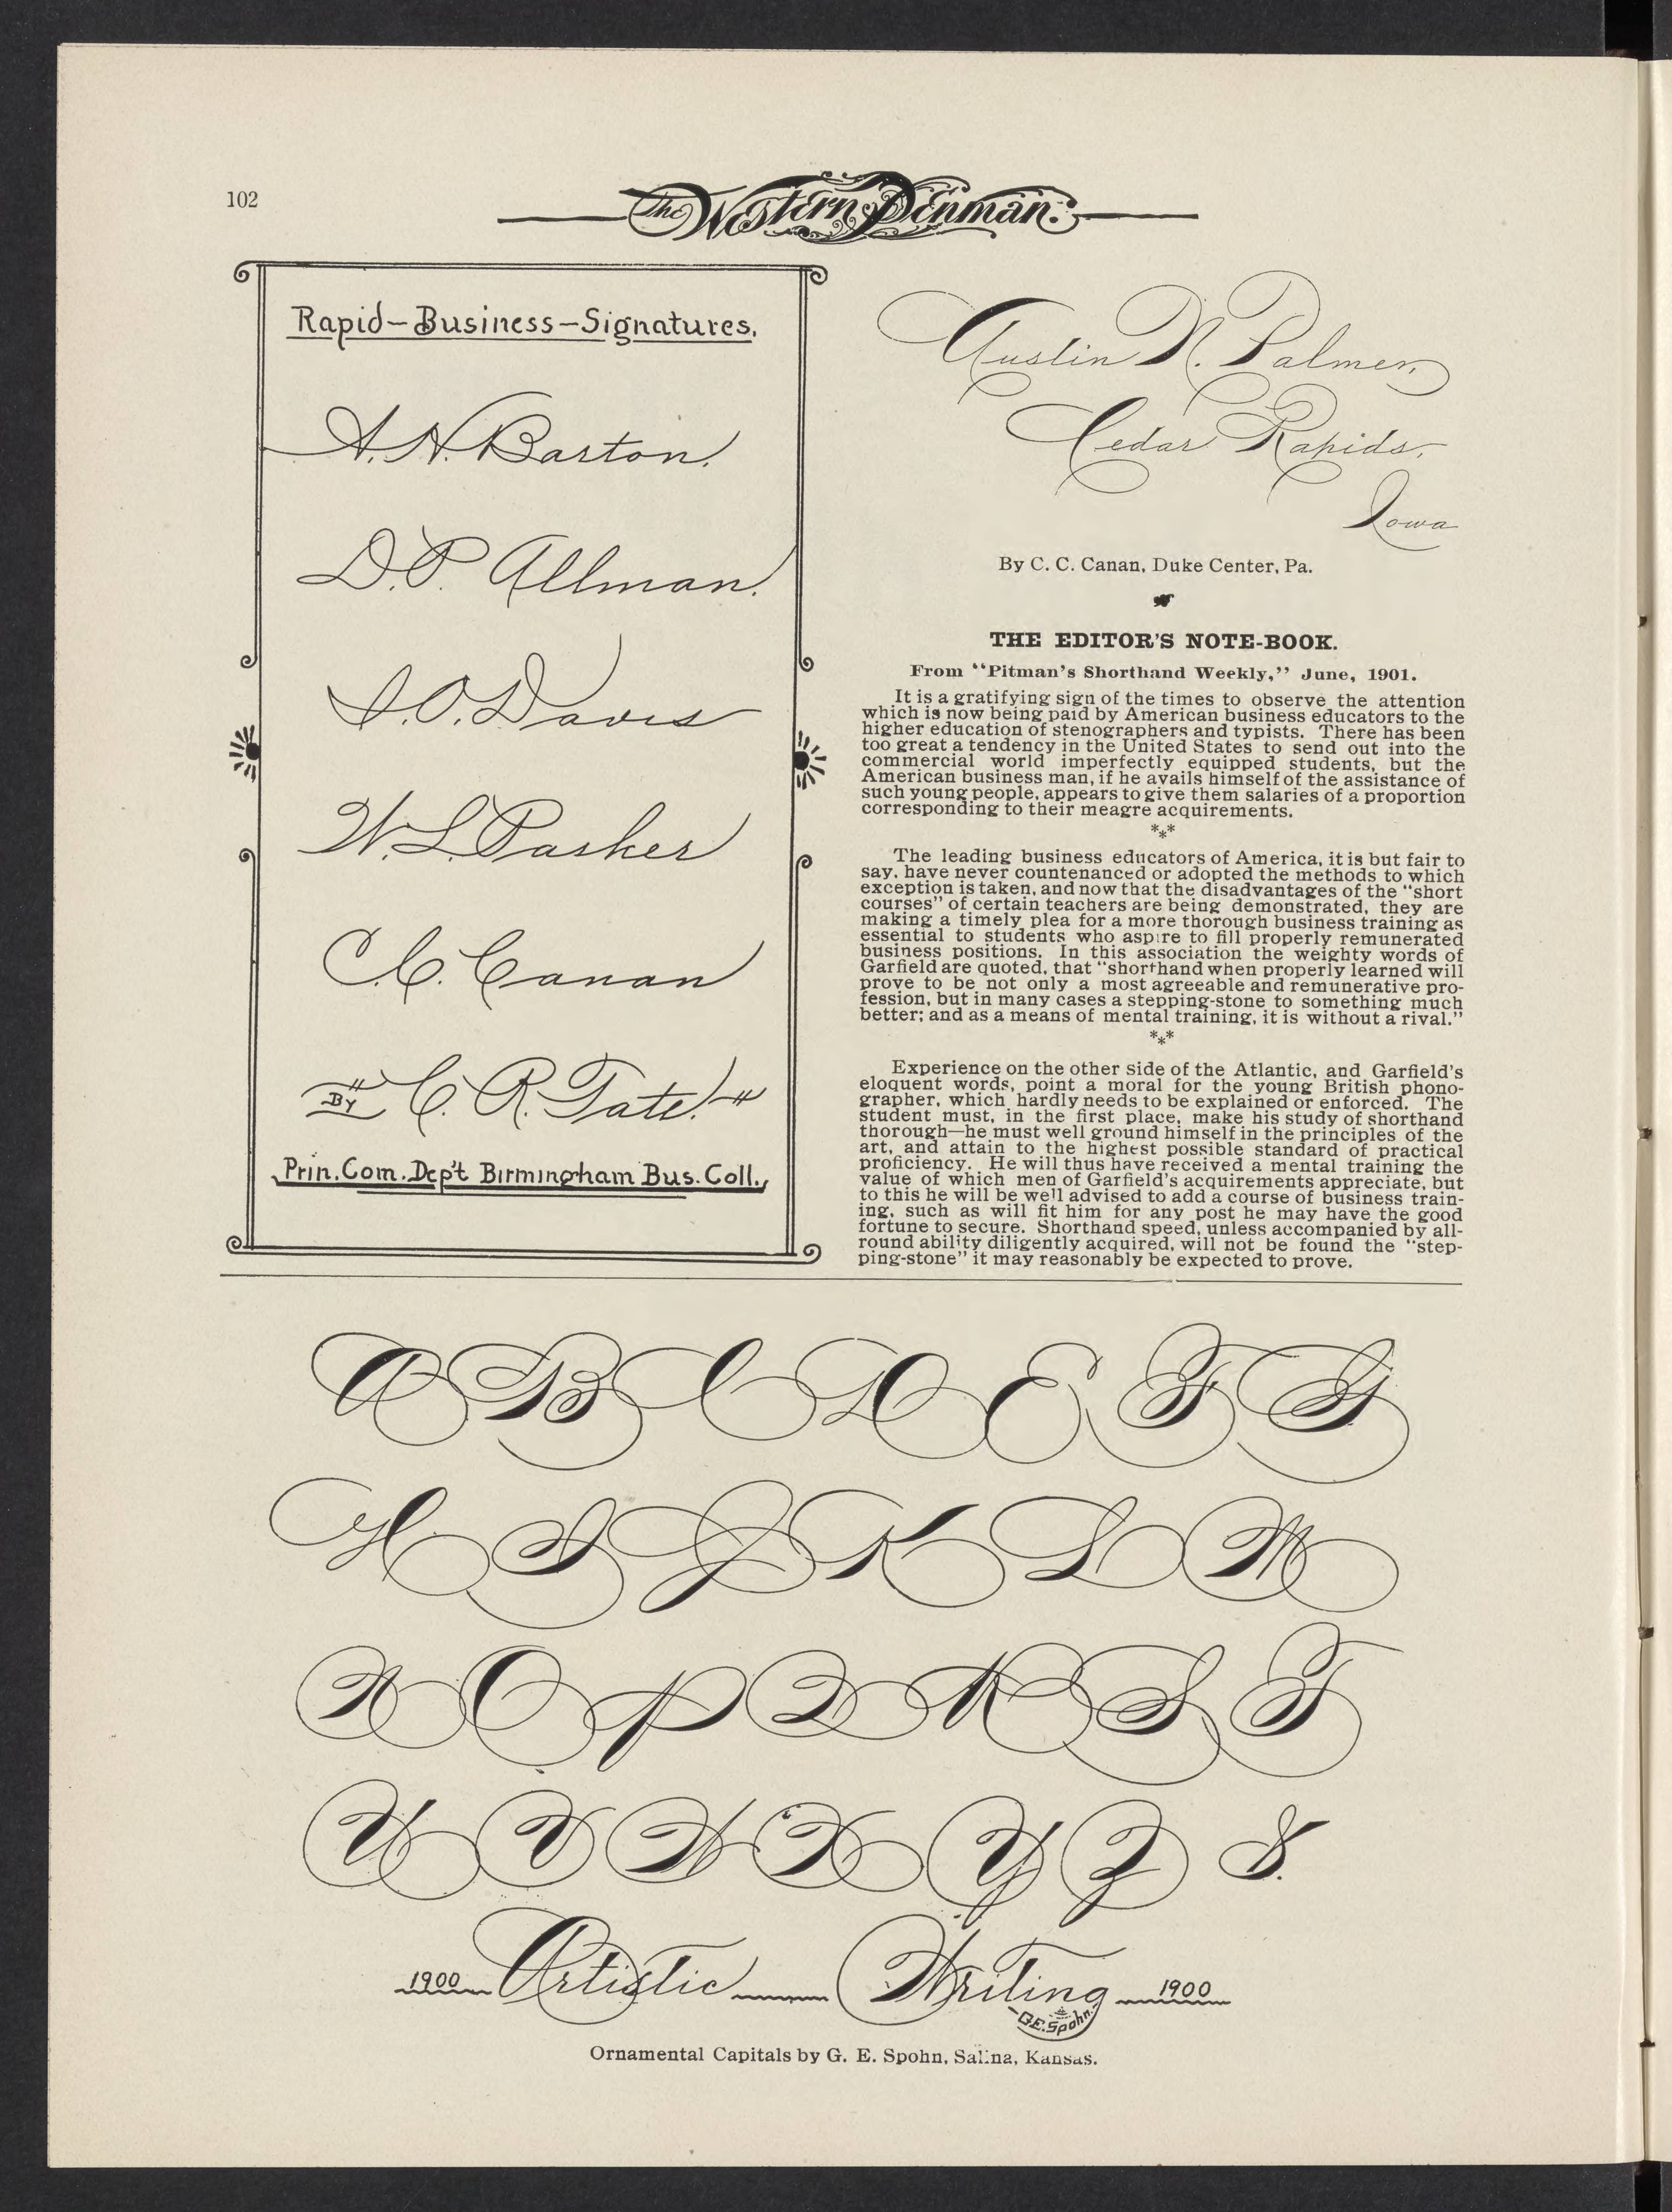 102
The Western Penman.
Rapid-Business-Signatures.
A. N. Barton.
D. P. Allman.
I. O. Davis
W. L. Parker
C. C. Canan
BY C. R. Tate.
Prin. Com. Dep't Birmingham Bus. Coll.
Austin N. Palmer,
Cedar Rapids,
Iowa
By C. C. Canan, Duke Center, Pa.
THE EDITOR'S NOTE-BOOK.
From "Pitman's Shorthand Weekly," June, 1901.
It is a gratifying sign of the times to observe the attention
which is now being paid by American business educators to the
higher education of stenographers and typists. There has been
too great a tendency in the United States to send out into the
commercial world imperfectly equipped students, but the
American business man, if he avails himself of the assistance of
such young people, appears to give them salaries of a proportion
corresponding to their meagre acquirements.
***
The leading business educators of America, it is but fair to
say, have never countenanced or adopted the methods to which
exception is taken, and now that the disadvantages of the "short
courses" of certain teachers are being demonstrated, they are
making a timely plea for a more thorough business training as
essential to students who aspire to fill properly remunerated
business positions. In this association the weighty words of
Garfield are quoted, that "shorthand when properly learned will
prove to be not only a most agreeable and remunerative pro-
fession, but in many cases a stepping-stone to something much
better; and as a means of mental training, it is without a rival."
***
Experience on the other side of the Atlantic, and Garfield's
eloquent words, point a moral for the young British phono-
grapher, which hardly needs to be explained or enforced. The
student must, in the first place, make his study of shorthand
thorough—he must well ground himself in the principles of the
art, and attain to the highest possible standard of practical
proficiency. He will thus have received a mental training the
value of which men of Garfield's acquirements appreciate, but
to this he will be well advised to add a course of business train-
ing, such as will fit him for any post he may have the good
fortune to secure. Shorthand speed, unless accompanied by all-
round ability diligently acquired, will not be found the "step-
ping-stone" it may reasonably be expected to prove.
A B C D E F G
H I J K L M
N O P Q R S T
U V W X Y Z &.
1900 Artistic Writing 1900
G.E. Spohn.
Ornamental Capitals by G. E. Spohn, Salina, Kansas.